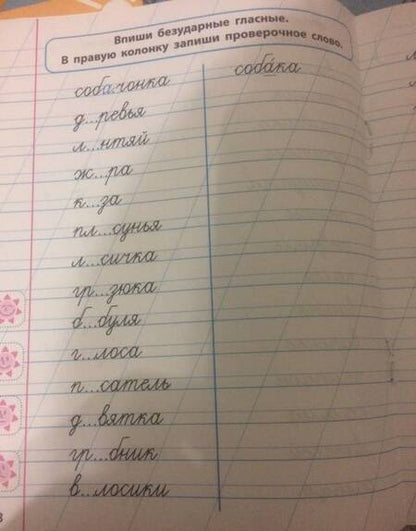 Впиши безударные гласные.
В правую колонку запиши проверочное слово.
собачонка соба́ка
д...ревья
л...нтяй
ж...ра
к...за
пл...сунья
л...сичка
гр...зюка
б...буля
г...лоса
п...сатель
д...вятка
гр...бник
в...лосики